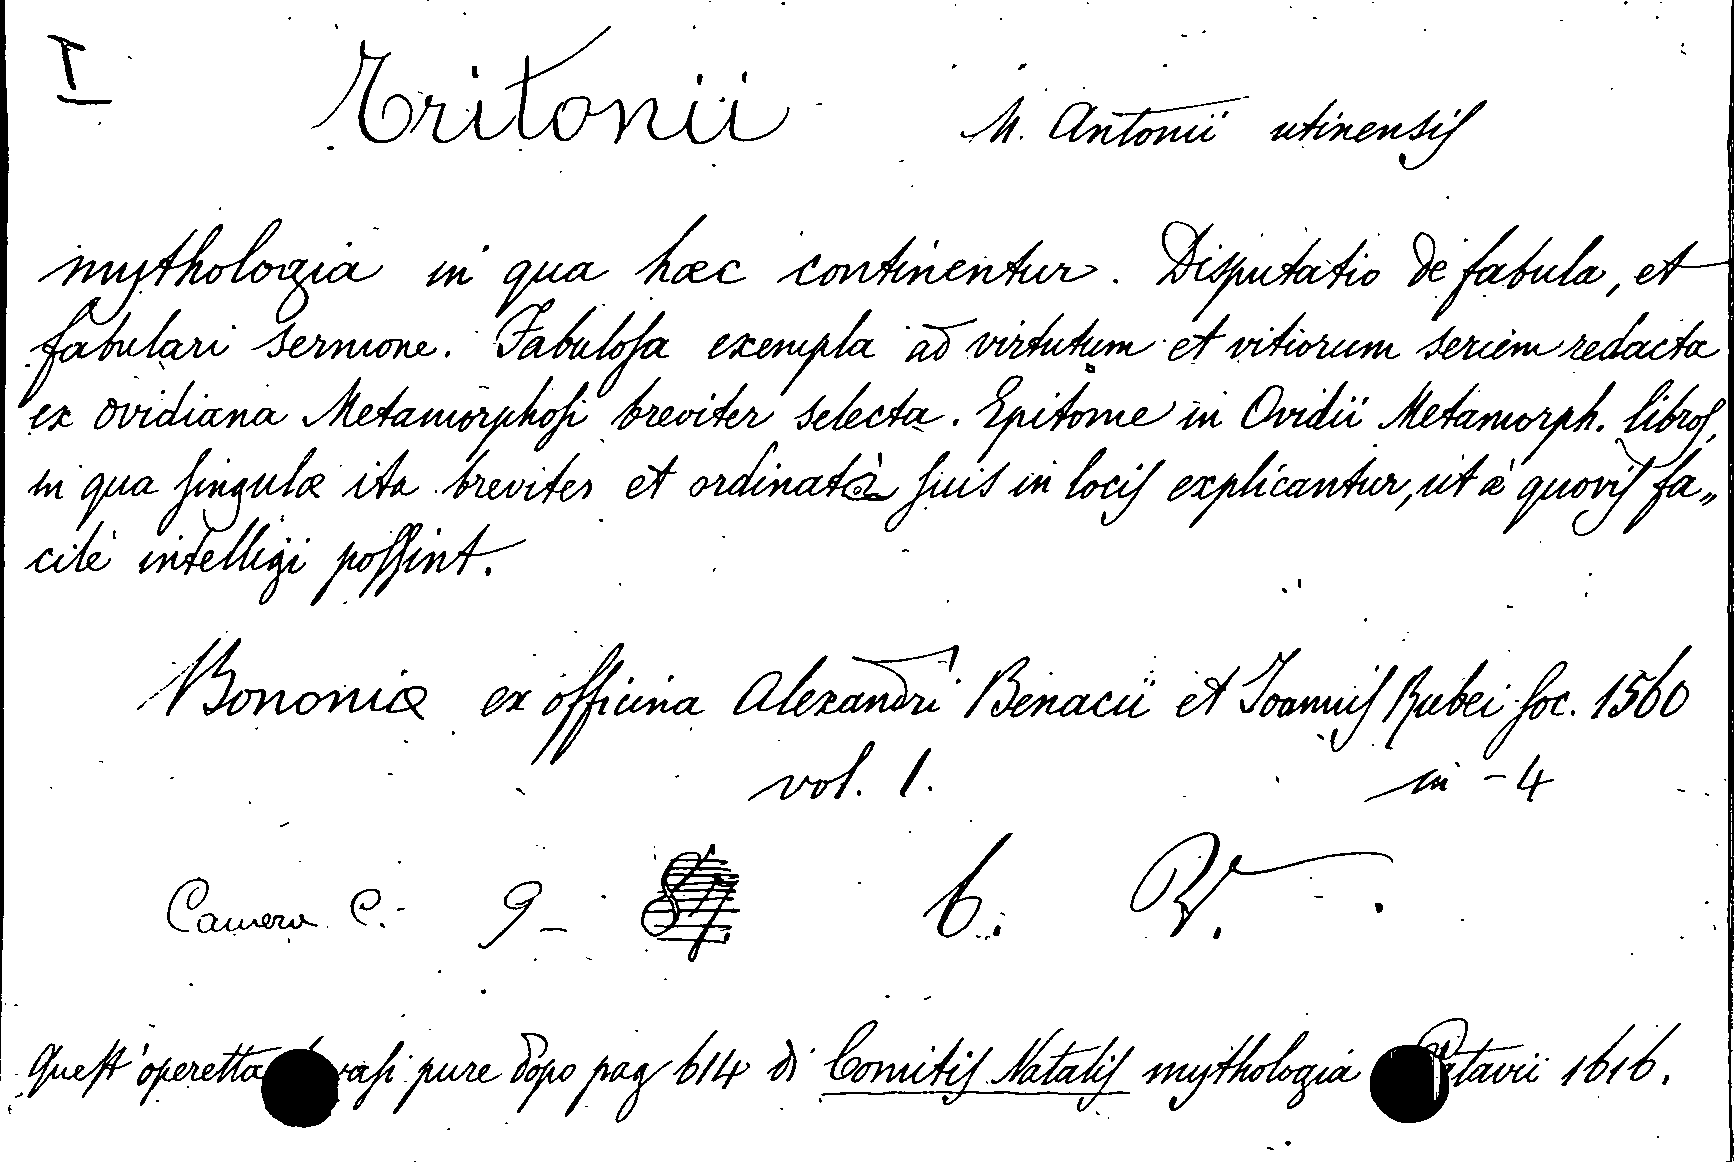 I
Tritonii M. Antonii utinensis
mythologia in qua hæc continentur. Disputatio de fabula, et
fabulari sermone. Fabulosa exempla ad virtutum et vitiorum seriem redacta
ex ovidiana Metamorphosi breviter selecta. Epitome in Ovidii Metamorph. libros,
in qua singulæ ita breviter et ordinatà suis in locis explicantur, ut à quovis fa„
cilè intelligi possint.
Bononiæ ex officina Alexandri Benacii et Joannis Rubei soc. 1560
vol. 1. in - 4
Camera C. 9 - 6. V.
Quest'operetta vasi pure dopo pag 614 di Comitis Natalis mythologia Patavii 1616.